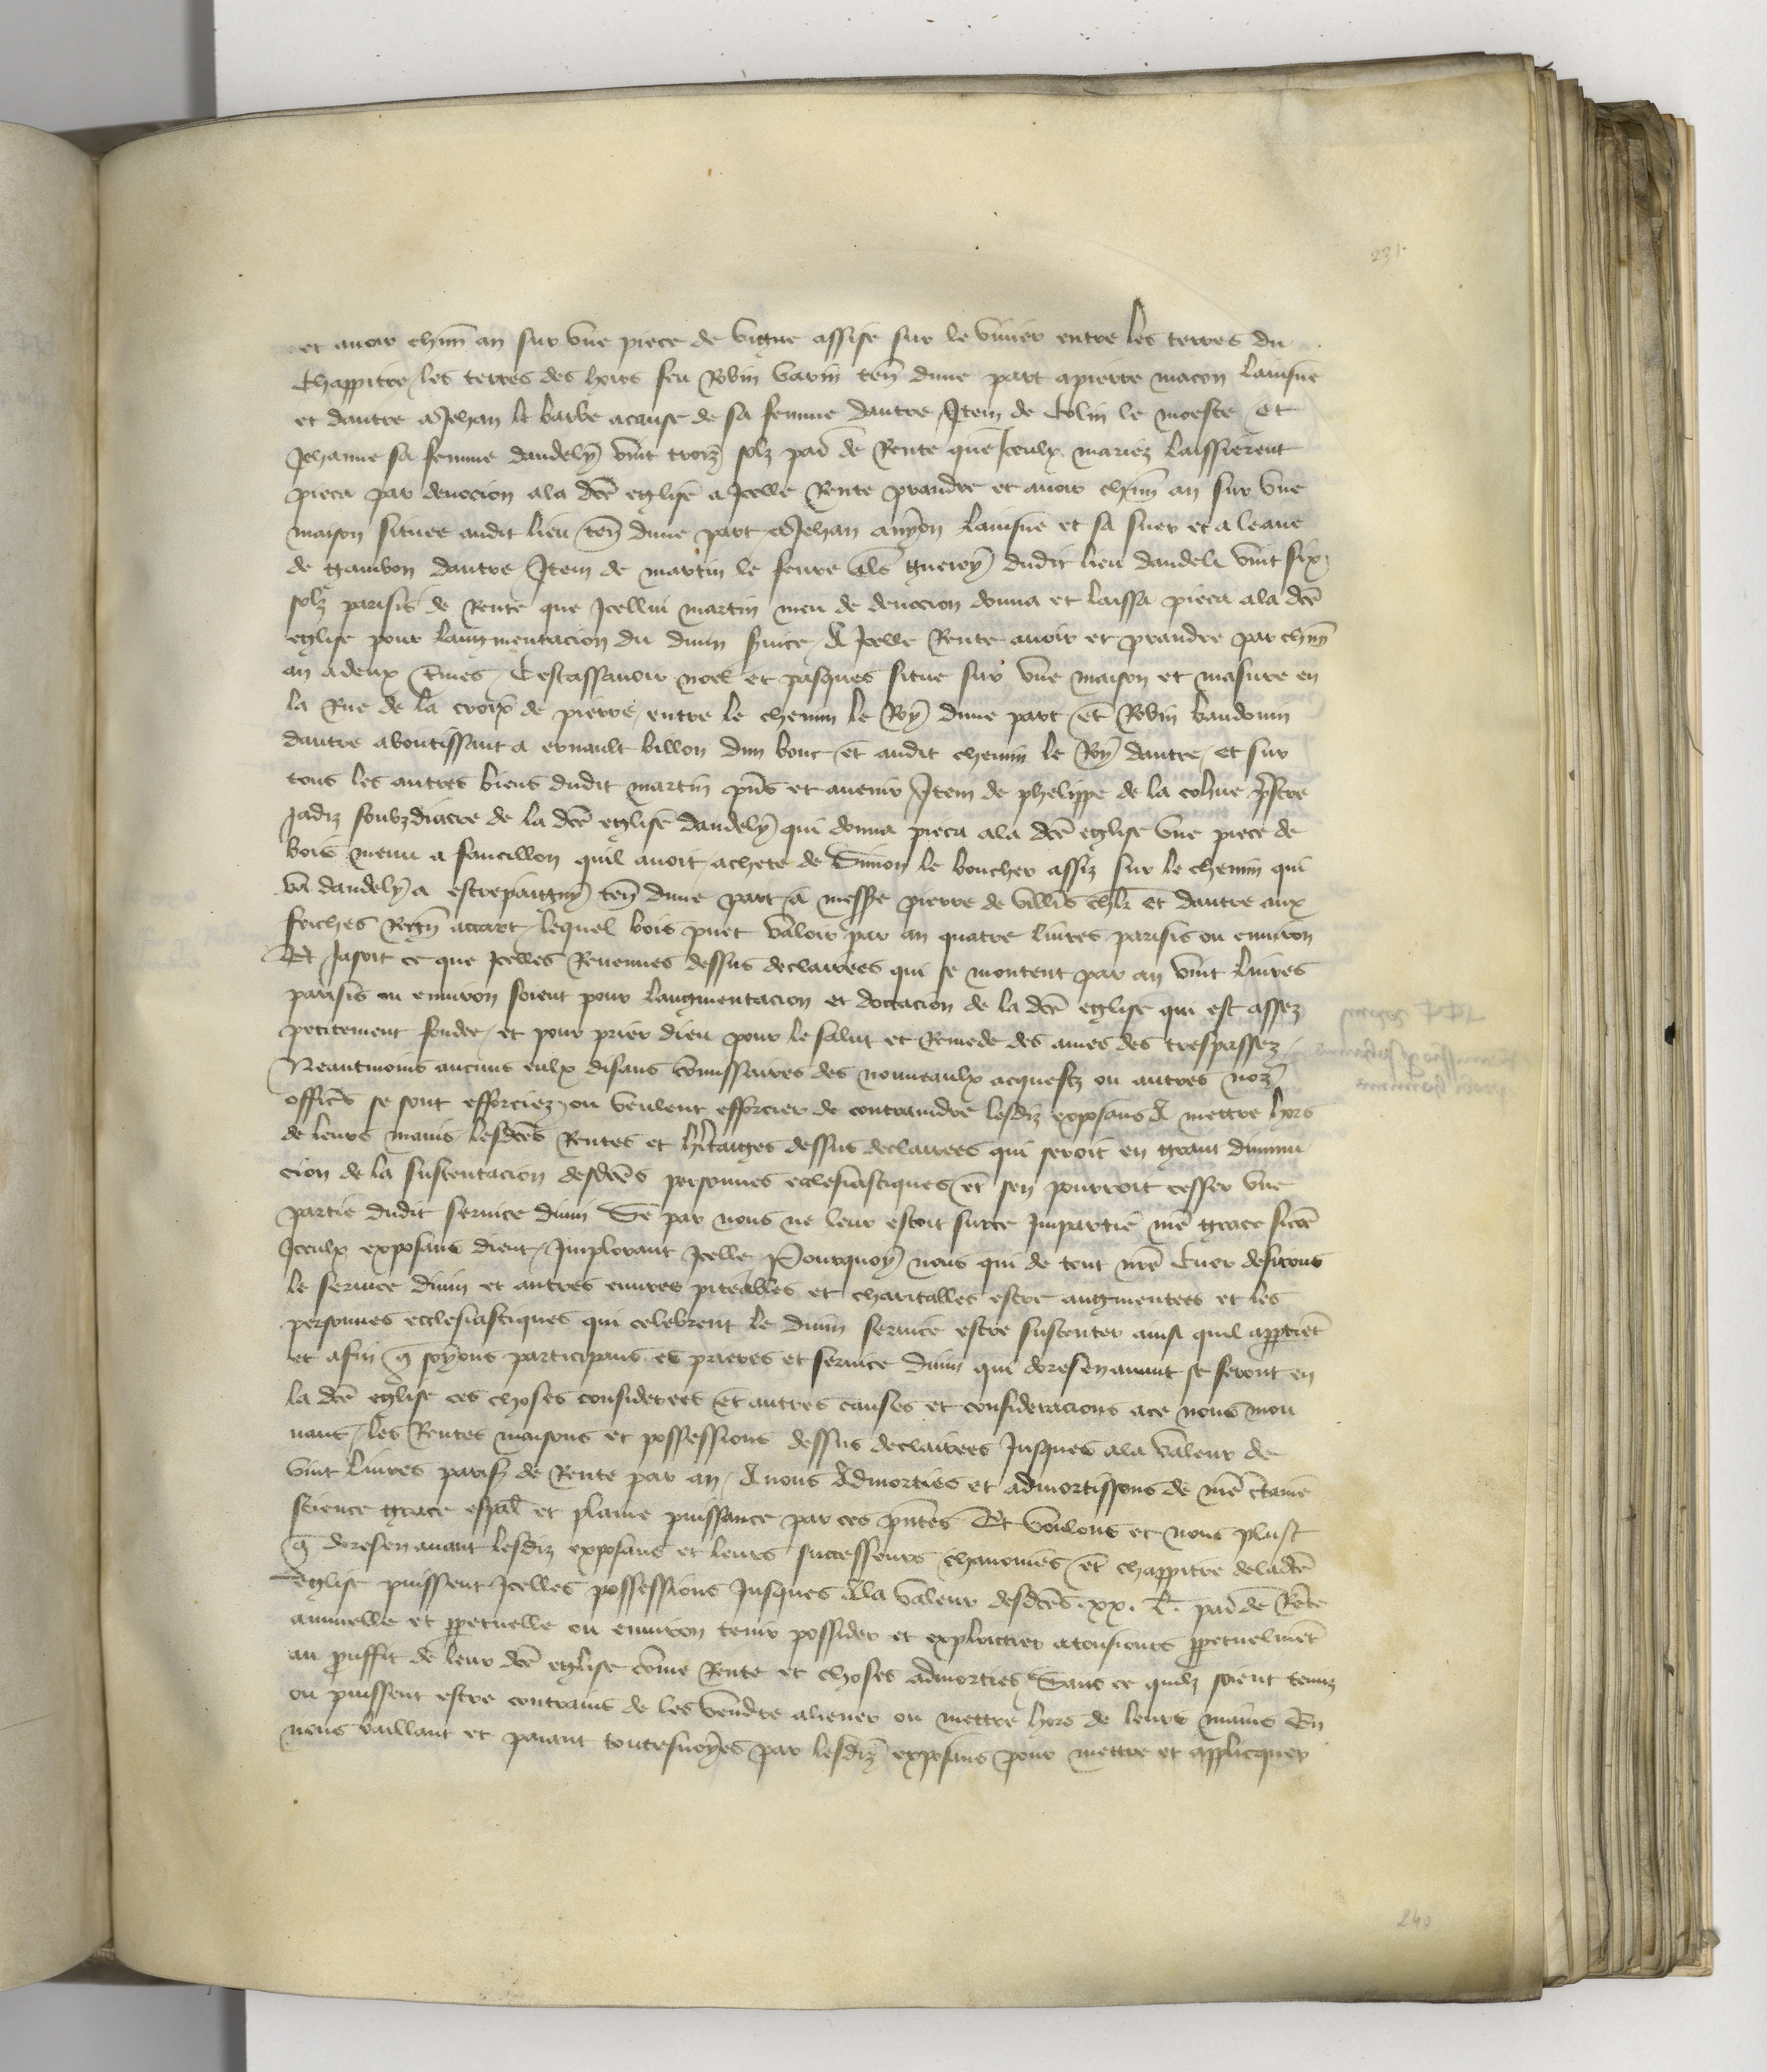 231
et avoir chun an sur une piece de vigne assise sur le vivier entre les terres du
Chappitre, les terres des hoirs feu Robin Varin ten dune part a pierre macon laisne
et dautre a Jehan le barbe acause de sa femme dautre, Item de Colin le moeste, et
Jehanne sa femme dandely vint troiz solz par de Rente que Iceulx mariez laissierent
pieca par devocion ala dce eglise a Icelle Rente prandre et avoir chun an sur une
maison située audit lieu ten dune part a Jehan laisne et sa suer et a leaue
de gambon dautre, Item de martin le fevre als dudit lieu dandeli vint six
solz parisis de Rente que Icellui martin meu de devocion donna et laissa pieca ala dce
eglise pour laugmentacion du divin svice, A Icelle Rente avoir et prandre par chun
an a deux tmes, Cestassavoir noel et pasques situé sur une maison et masure en
la Rue de la croix de pierre, entre le chemin le Roy dune part, et Robin baudouin
dautre aboutissant a ernault billon dun bout et audit chemin le Roy dautre, et sur
tous les autres biens dudit martin pns et avenir, Item de phelippe de la cohue pstre
Jadiz soubzdiacre de la dce eglise dandely qui donna pieca ala dce eglise une piece de
bois menu a faucillon quil avoit achete de Simon le boucher assiz sur le chemin qui
va dandely a estrepaigny ten dune part a messe pierre de villis chlr et dautre aux
friches accart, lequel bois puet valoir par an quatre livres parisis ou environ
Et Jasoit ce que Icelles Revenues dessus declairees qui se montent par an vint livres
parisis ou environ soient pour laugmentacion et dottacion de la dce eglise qui est assez
petitement fondee, et pour prier dieu pour le salut et Remede des ames des trespassez,
Neantmoins aucuns eulx disans comissaires des nouveaulx acquestz ou autres noz
officrs se sont efforciez, ou veulent efforcier de contraindre lesdiz exposans A mettre hors
de leurs mains lesdces Rentes et hritaiges dessus declairees qui seroit en grant diminu
cion de la sustentacion desdces personnes ecclesiastiques, et sen pourroit cesser une
partie dudit service divin Se par nous ne leur estoit surce Impartie nre grace sicoe
Iceulx exposans dient, Implorant Icelle Pourquoy nous qui de tout nre Cuer desirons
le service divin et autres euvres piteables et charitables estre augmentees et les
personnes ecclesiastiques qui celebrent le divin service estre sustenter ainsi quil apptiet
et afin q soyons participans es prieres et service divin qui doresenavant se feront en
la dce eglise ces choses considerees et autres causes et consideracions ace nous mou
vans, les Rentes maisons et possessions dessus declairees Jusques ala valeur de
vint livres paris de Rente par an, Avons Admorties et admortissons de nre ctaine
science grace espal et plaine puissance par ces pntes Et voulons et nous plaist
q doresenavant lesdiz exposans et leurs successeurs chanoines et chappitre deladce
eglise puissent Icelles possessions Jusques Ala valeur desdces .xx. l. par de Rente
annuelle et ppetuelle ou environ tenir possider et exploictier atousiours ppetuelmet
au prouffit de leur dce eglise come Rente et choses admorties, Sans ce quilz soient tenuz
ou puissent estre contrains de les vendre aliener ou mettre hors de leurs mains En
nous baillant et paiant toutesvoyes par lesdiz exposans pour mettre et applicquer
240